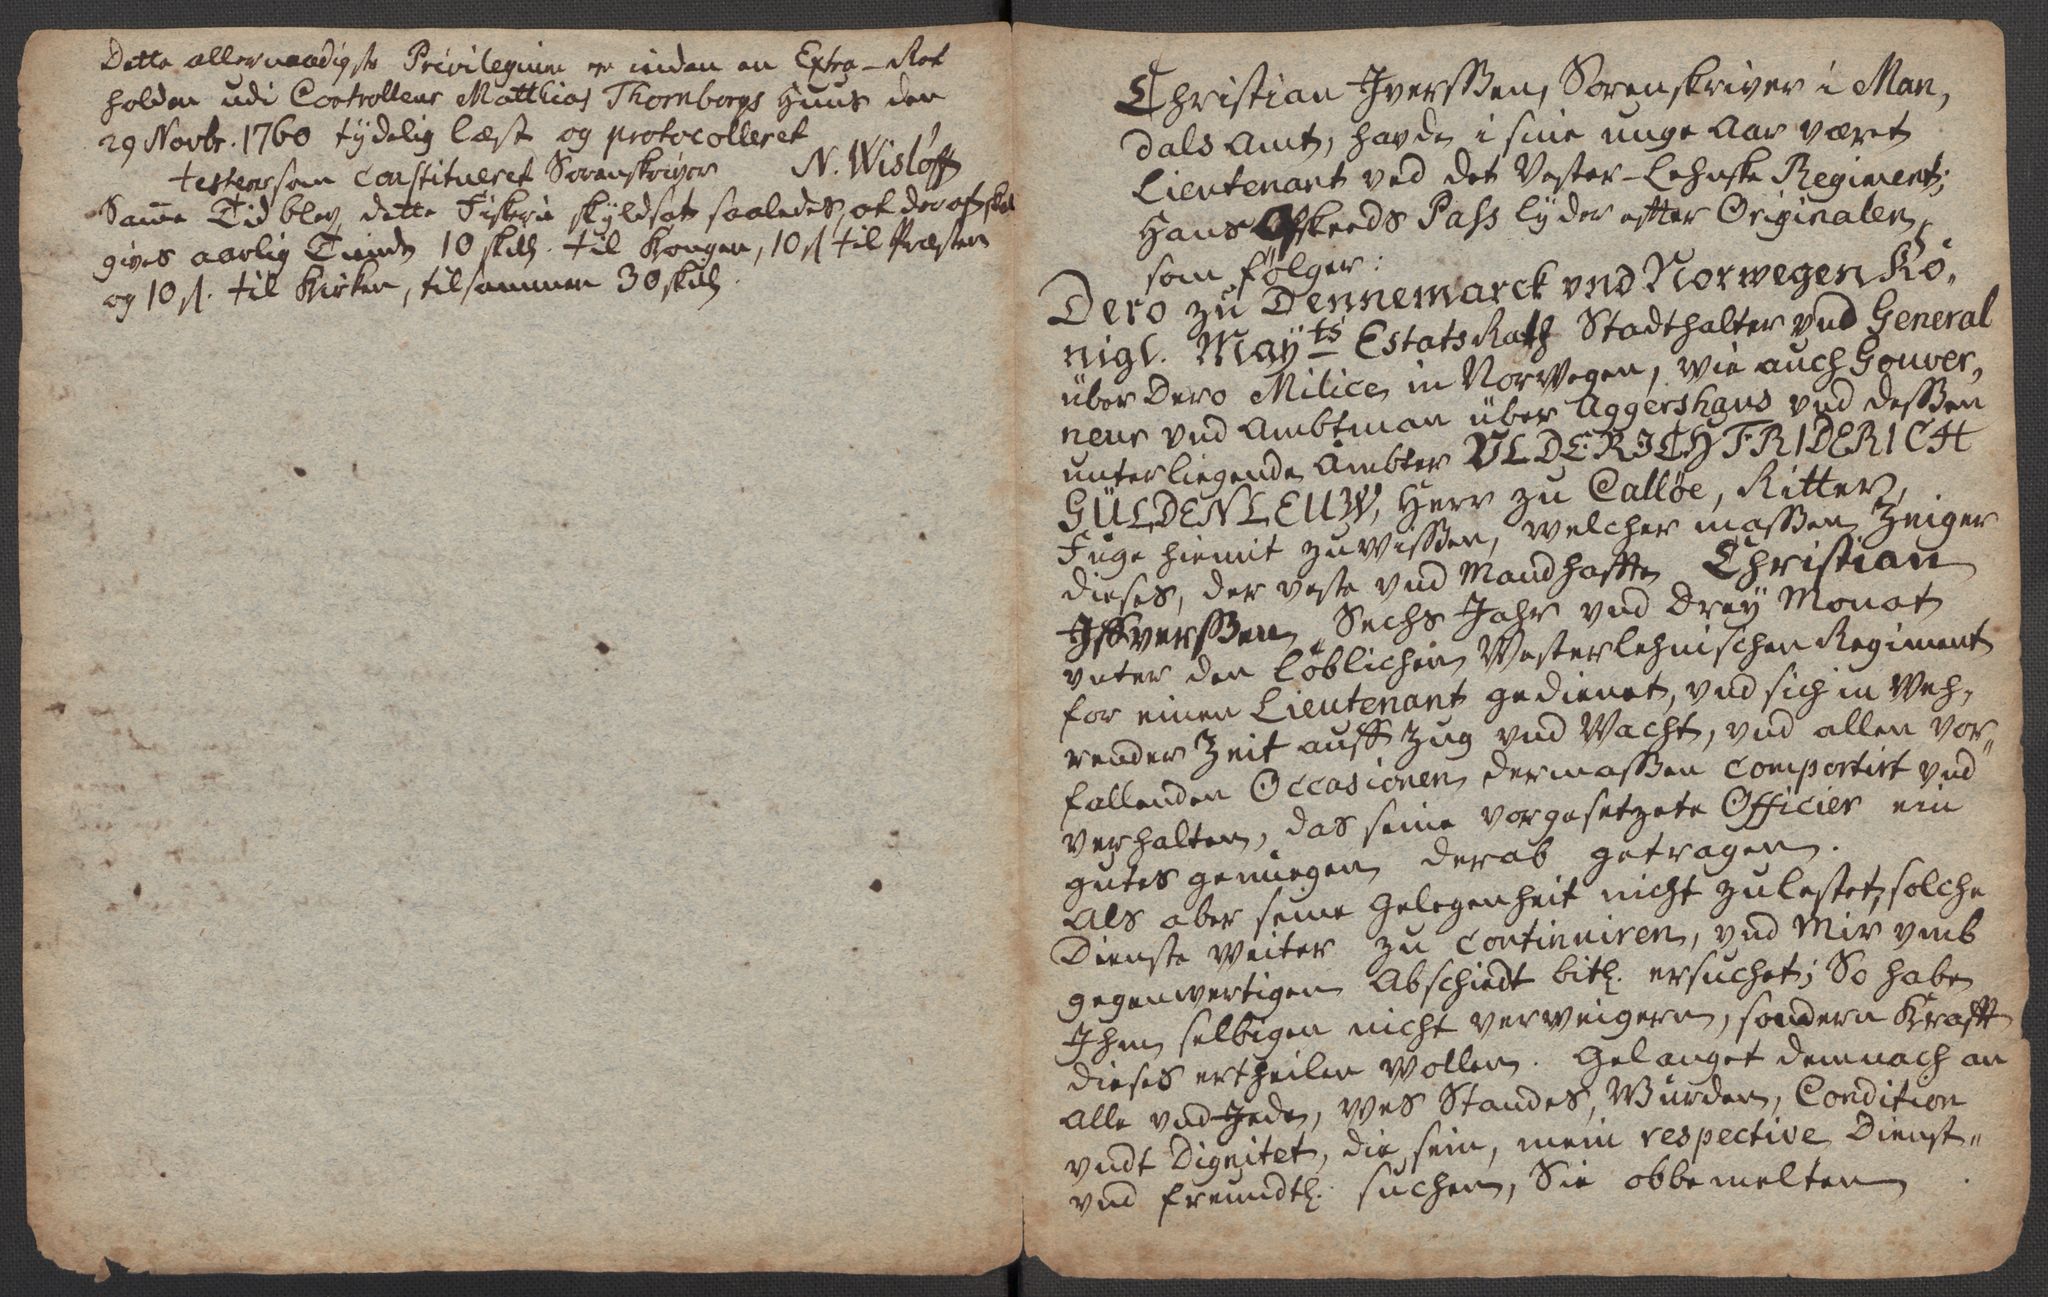 Dette allernaadigste Privilegium er inden en Extra-Ret
holden udi Controlleur Matthias Thornborgs Huus den
29 Novbr. 1760 tydelig læst og protocolleret
testerer som constitueret Sorenskriver N. Wisløff
Samme Tid blev dette Fiskerie skyldsat saaledes, at deraf skal
gives aarlig Tiende 10 skill. til Kongen, 10 sl til Præsten
og 10 sl. til Kirken, tilsammen 30 skill.
Christian Jverssen, Sorenskriver i Man,
dals Amt, havde i sine unge Aar været
Lieutenant ved det Vester-Lehnske Regiment;
Hans Afskeeds Pass lyder efter Originalen
som følger:
Dero zu Dennemarck vnd Norwegen Kö,
nigl. Mayts Estats Rath Stadthalter vnd General
über Dero Milice in Norwegen, wie auch Gouver,
neur vnd Ambtman über Aggershaus vnd dessen
unterliegende Ämbter VLDERICH FRIDERICH
GÜLDENLEUW, Herr zu Calløe, Ritter,
Fuge hiemit zuwissen, welcher massen Zeiger
dieses, der veste vnd Mandhaffte Christian
Jffverssen, Sechs Jahr vnd Drey Monat
vnter den Löblichen Westerlehnischen Regiment
for einen Lieutenant gedienet, vnd sich in weh,
render Zeit auff Zug vnd Wacht, vnd allen vor"
fallenden Occasionen dermassen comportirt vnd
verhalten, das seine vorgesetzete Officier ein
gutes genuegen derab getragen.
Als aber seine Gelegenheit nicht zulestet, solche
Dienste weiter zu continuiren, vnd Mir vmb
gegenwertigen Abschiedt bitl. ersuchet; So habe
Jhm selbigen nicht verweigern, sondern Krafft
dieses ertheilen wollen. Gelanget demnach an
Alle vnd Jede, wes Standes, Würden, Condition
vndt Dignitet, die sein, mein respective Dienst"
vnd freundtl. suchen, Sie obbemelten